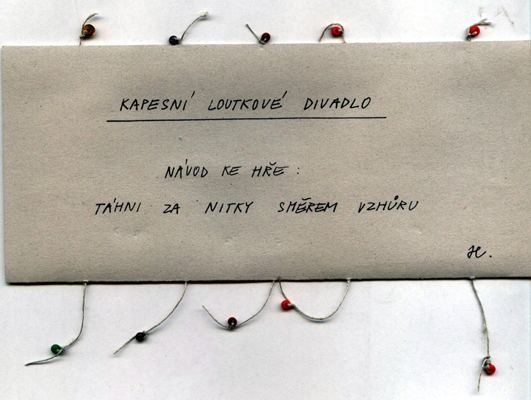 KAPESNÍ LOUTKOVÉ DIVADLO
NÁVOD KE HŘE:
TÁHNI ZA NITKY SMĚREM VZHŮRU